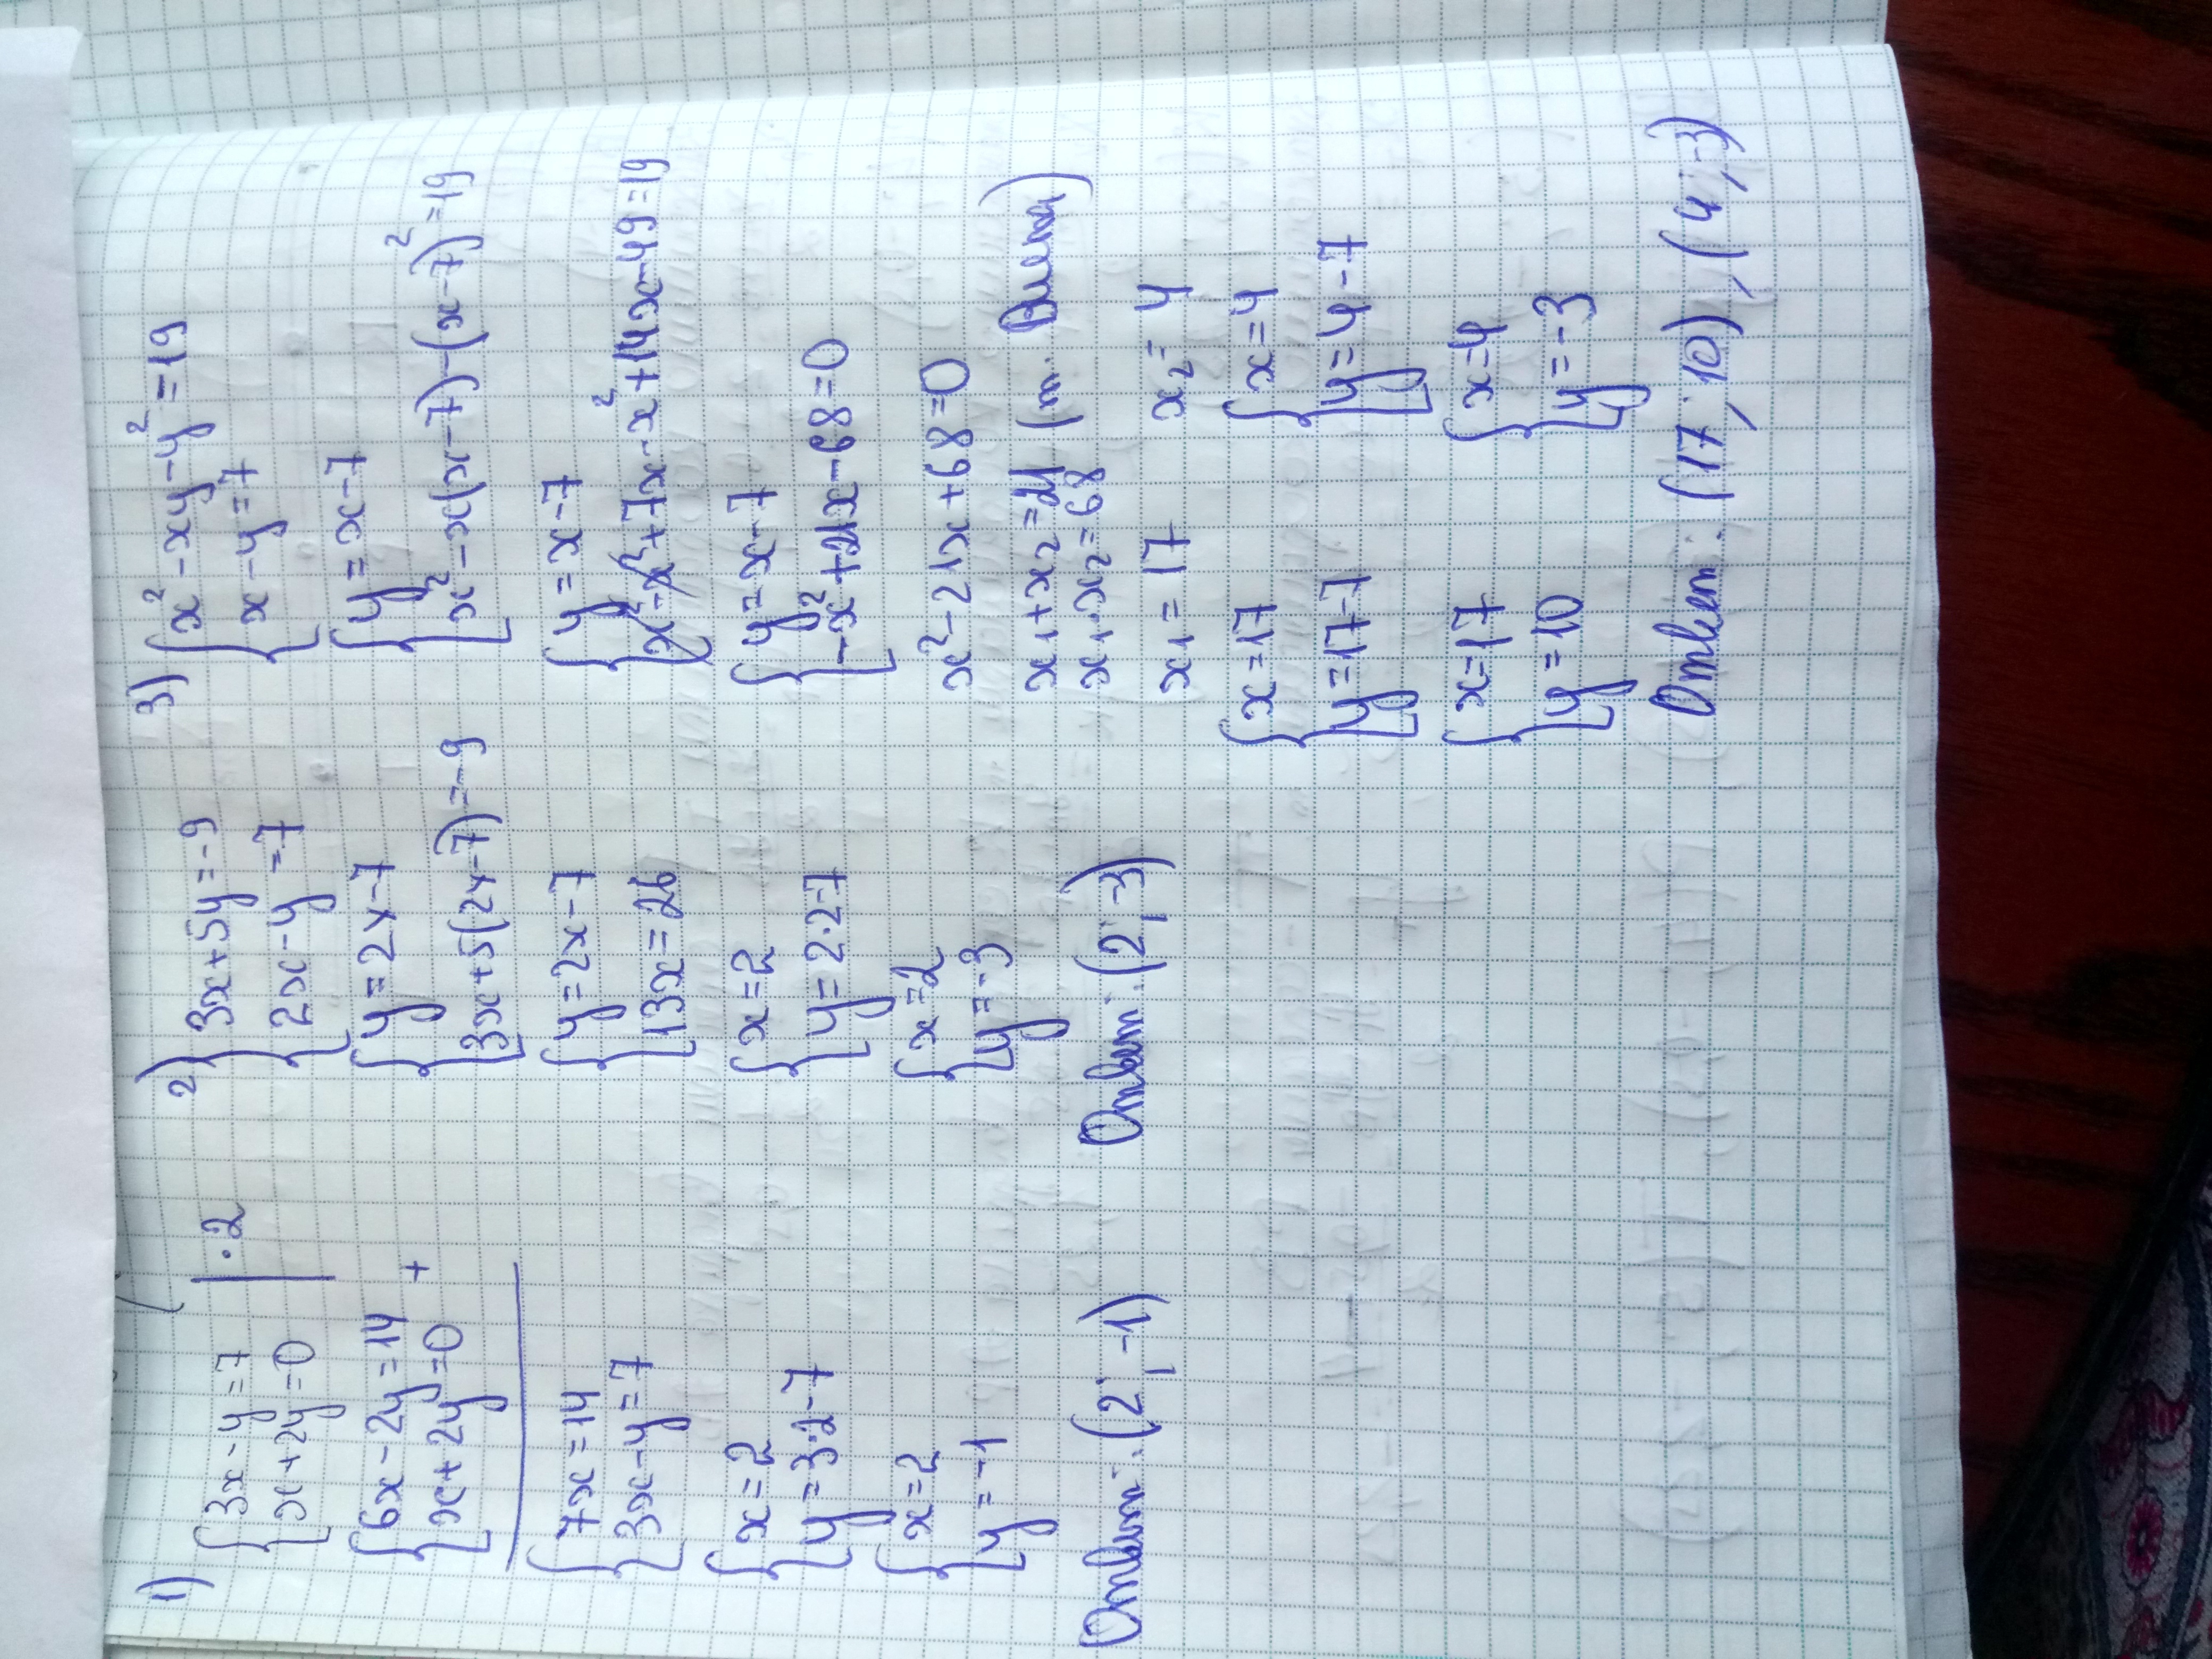 1)
{3x-y=7 |·2
x+2y=0
{6x-2y=14 +
x+2y=0
{7x=14
3x-y=7
{x=2
y=3·2-7
{x=2
y=-1
Ответ: (2;-1)
2)
{3x+5y=-9
2x-y=7
{y=2x-7
3x+5(2x-7)=-9
{y=2x-7
13x=26
{x=2
y=2·2-7
{x=2
y=-3
Ответ: (2;-3)
3)
{x²-xy-y²=19
x-y=7
{y=x-7
x²-x(x-7)-(x-7)²=19
{y=x-7
x²-x²+7x-x²+14x-49=19
{y=x-7
-x²+21x-68=0
x²-21x+68=0
x₁+x₂=21 (т. Виета)
x₁·x₂=68
x₁=17 x₂=4
{x=17 {x=4
y=17-7 y=4-7
{x=17 {x=4
y=10 y=-3
Ответ: (17;10), (4;-3)